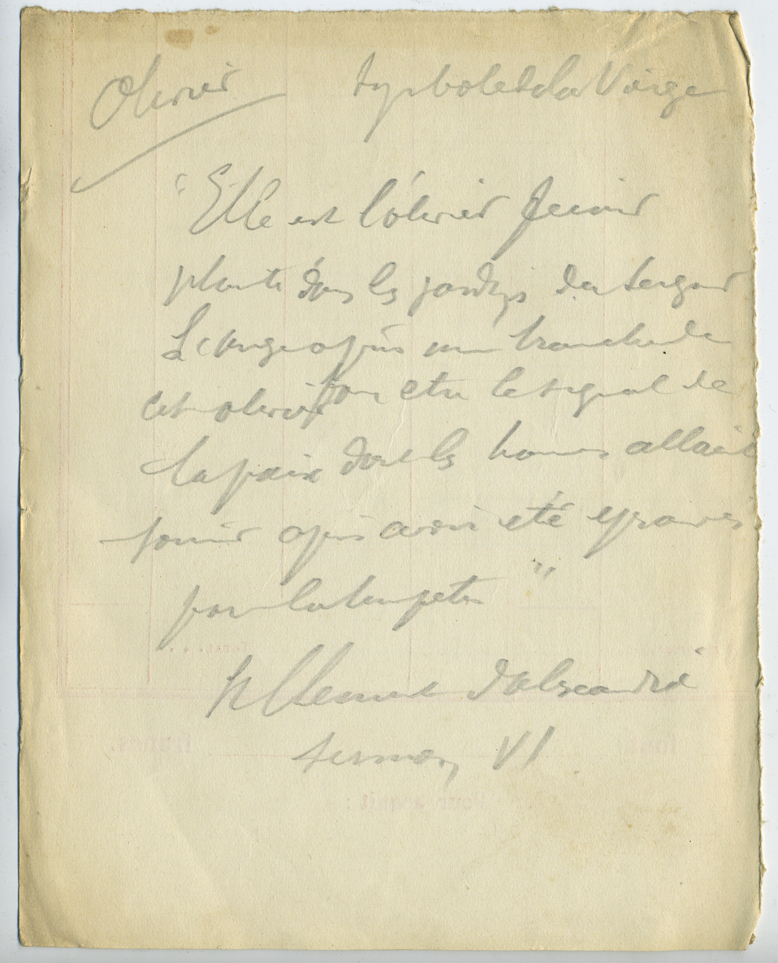 Olivier symbole de la Vierge
"Elle est l'olivier
planté dans les jardins du Seigneur
L'ange a pris une branche de
cet olivier pour être le signal de
la paix dont les hommes allait
jouir après avoir été éprouvés
par la tempête"
St Clément d'Alexandrie
sermon VI
Pour acquit :
francs.